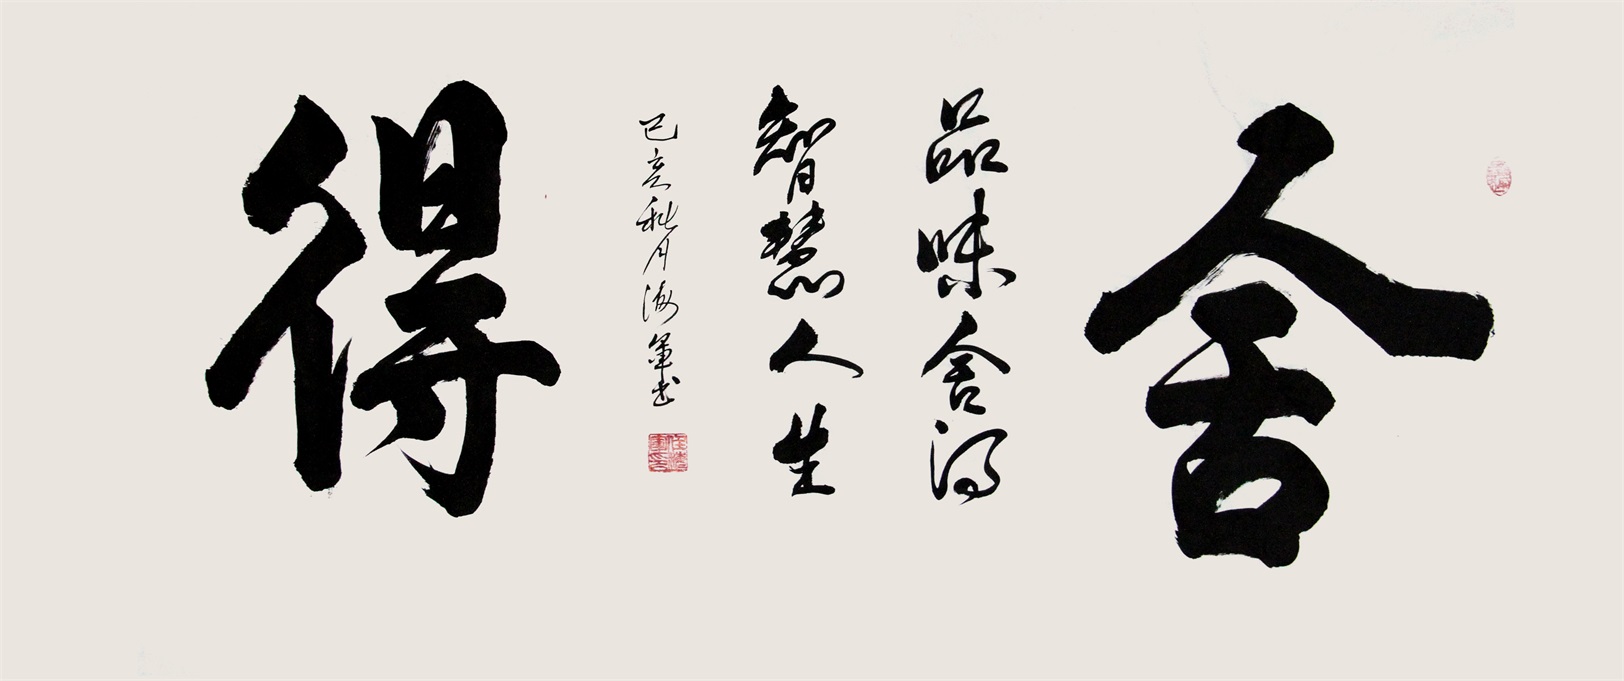 舍
品味舍得
智慧人生
己亥秋月海军书
得